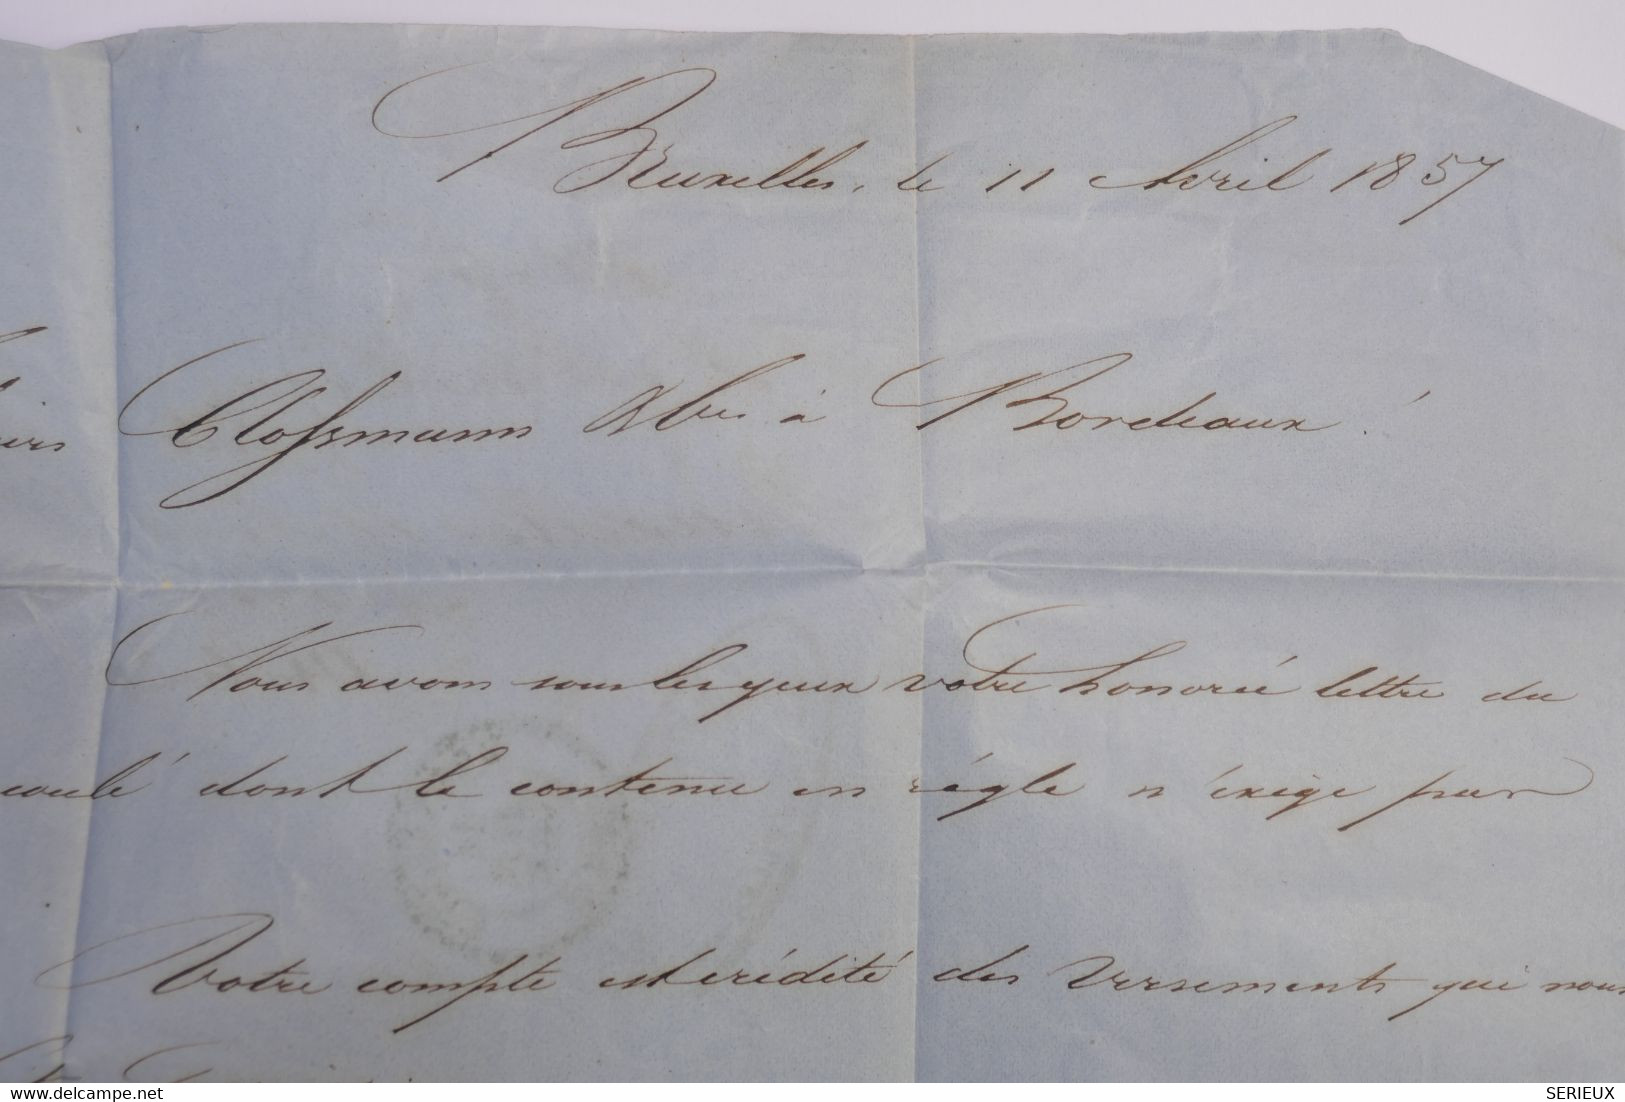 Bruxelles, le 11 Avril 1857
Clossmann & Cie à Bordeaux.
Nous avons sous les yeux votre honorée lettre du
coulé dont le contenu en règle n'éxige pas
Votre compte est crédité des versements qui nous
SERIEUX